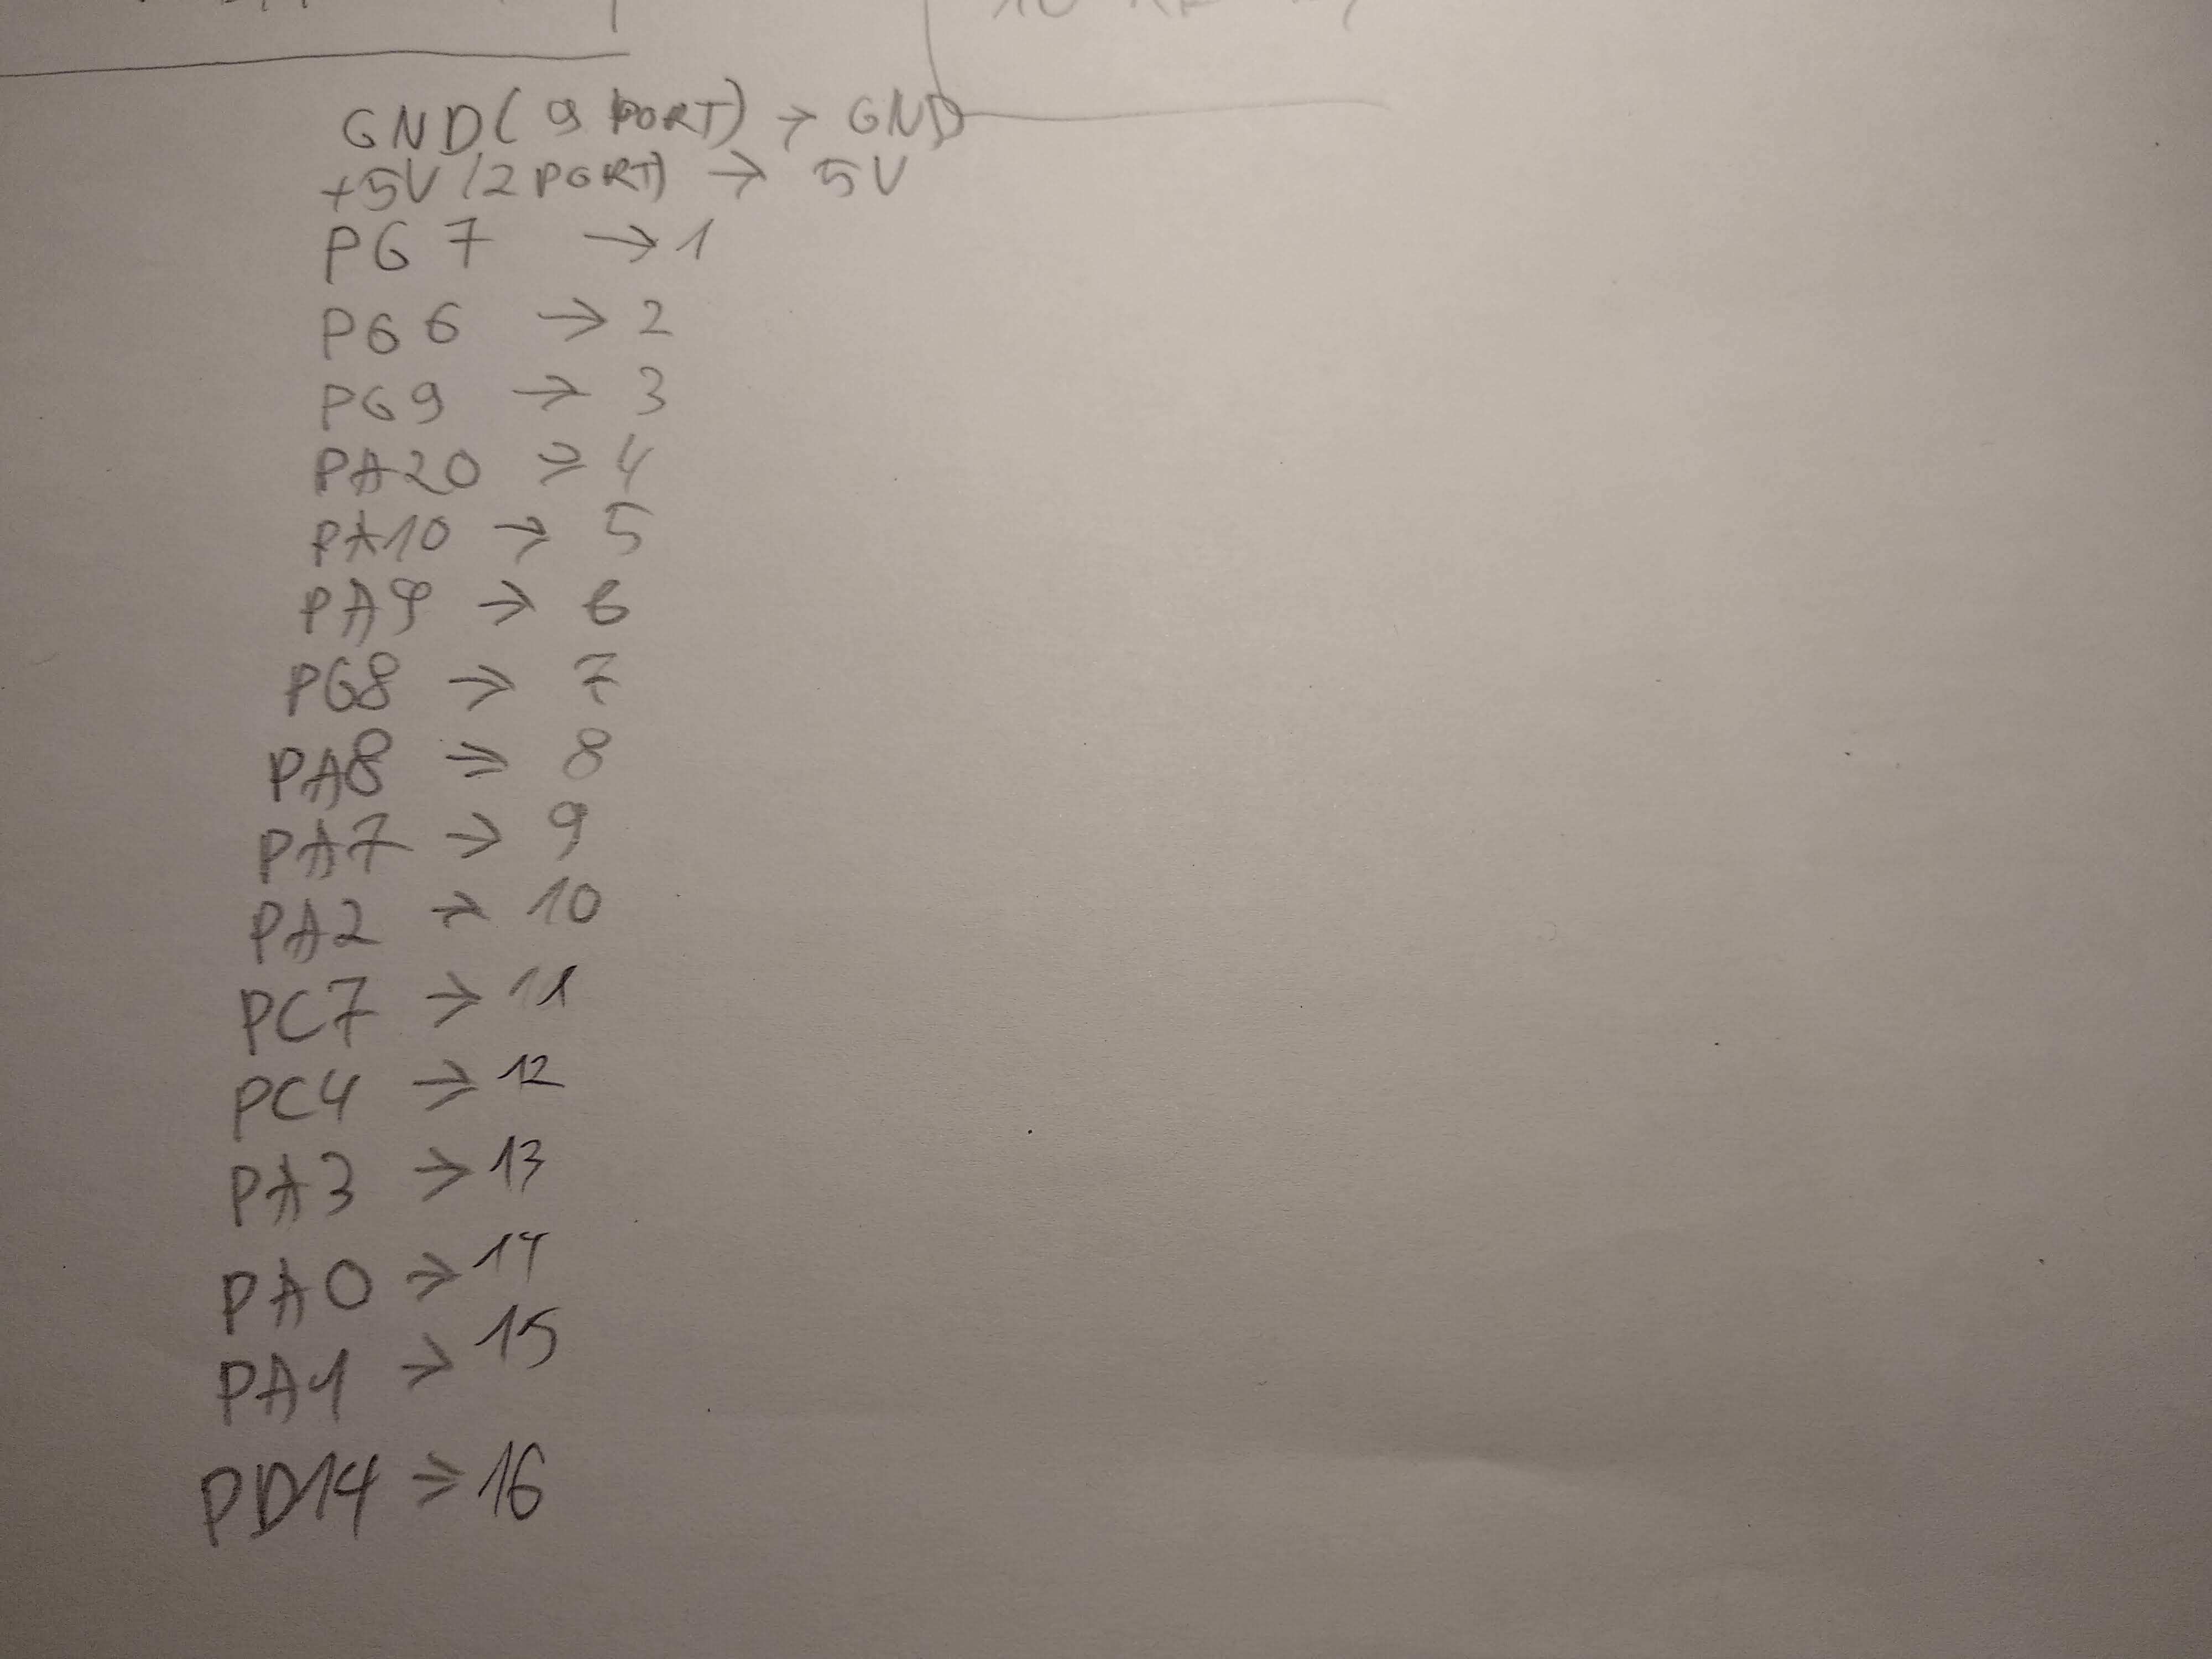 GND (9 PORT) → GND
+5V (2 PORT) → 5V
PG7 → 1
PG6 → 2
PG9 → 3
PA20 → 4
PA10 → 5
PA9 → 6
PG8 → 7
PA8 → 8
PA7 → 9
PA2 → 10
PC7 → 11
PC4 → 12
PA3 → 13
PA0 → 14
PA1 → 15
PD14 → 16